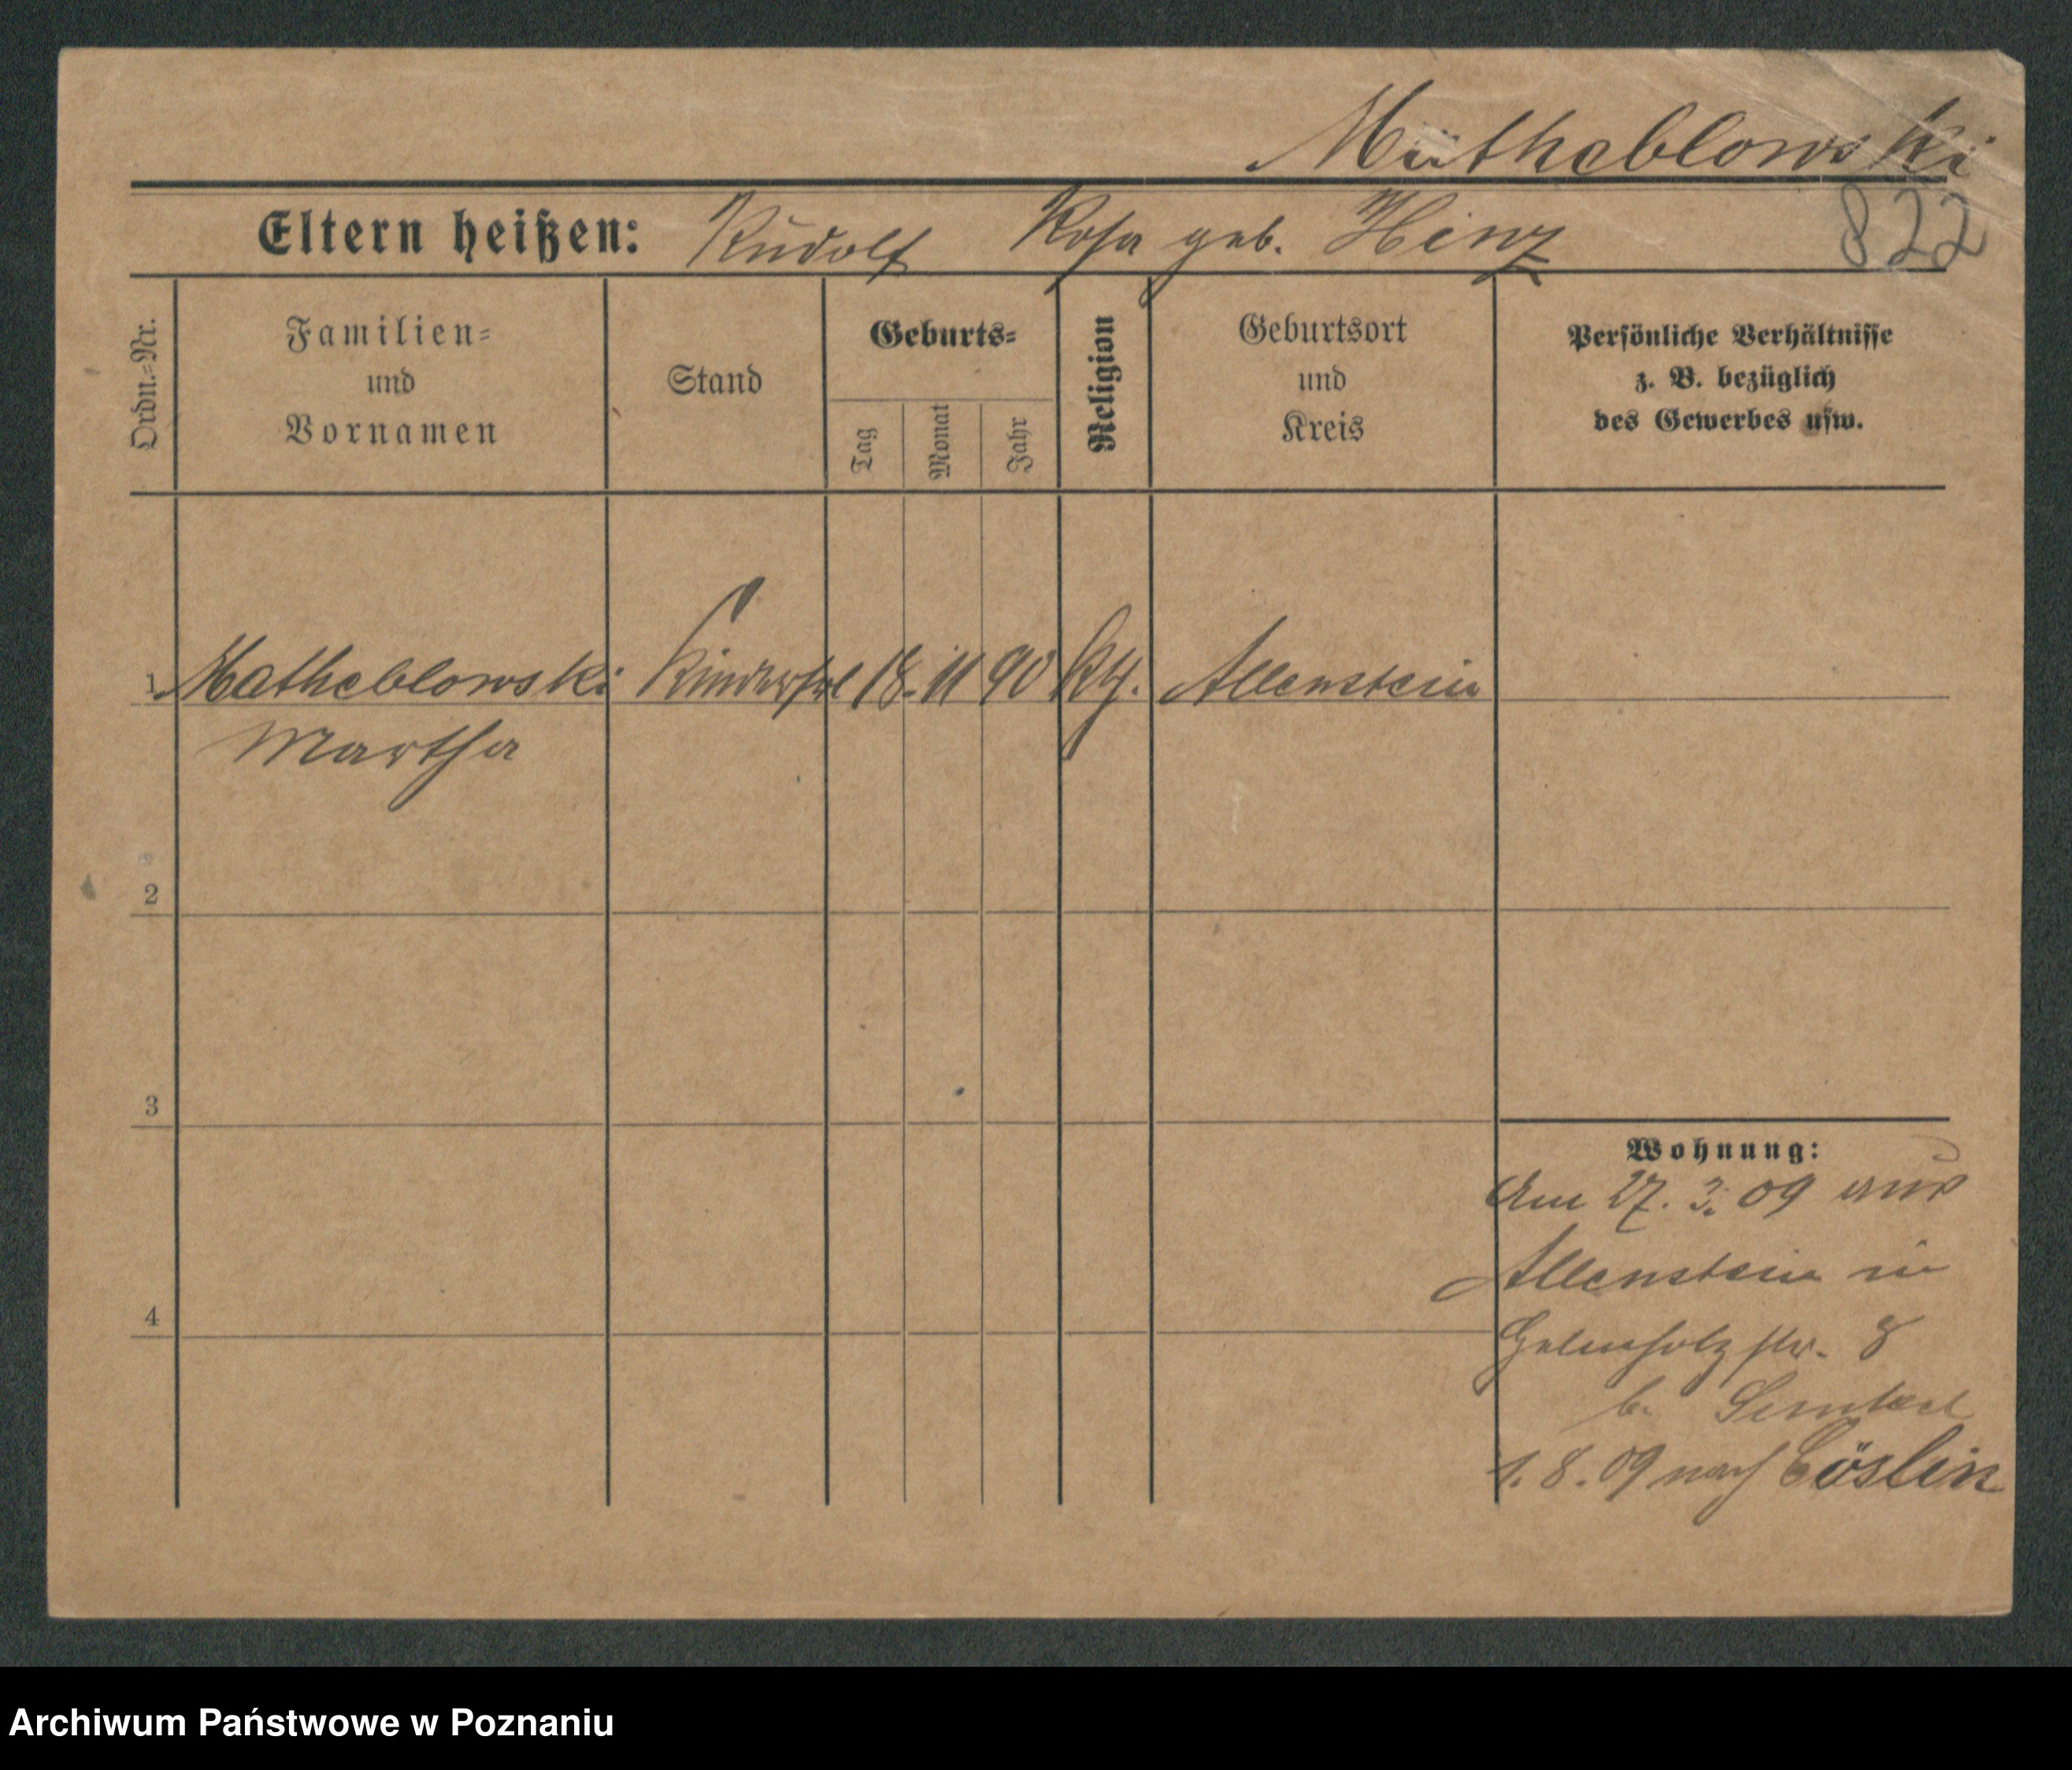 Mütheblowski
Eltern heißen: Rudolf Rosa geb. Hinz
822
Ordn.-Nr.
Familien-
und
Vornamen
Stand
Geburts-
Tag
Monat
Jahr
Religion
Geburtsort
und
Kreis
Persönliche Verhältnisse
z. B. bezüglich
des Gewerbes usw.
1 Matheblowski Kinderfrl 18. 11 90 Allenstein
Martha
2
3
4
Wohnung:
Am 27. 3. 09 aus
Allenstein in
8
b.
1. 8. 09 nach Cöslin
Archiwum Państwowe w Poznaniu